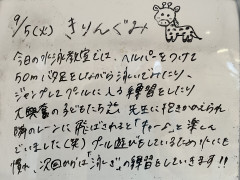 9/5(火) きりんぐみ
今日の水泳教室では、ヘルパーをつけて
50m バタ足をしながら泳いでみたり、
ジャンプしてプールに入る練習をしたり
大興奮の子どもたち 先生に抱きかかえられ
隣のレーンに飛ばされると「キャー」と楽しん
でいました(笑) プール遊びをしているため水にも
慣れ、次回からは泳ぎの練習をしていきます!!